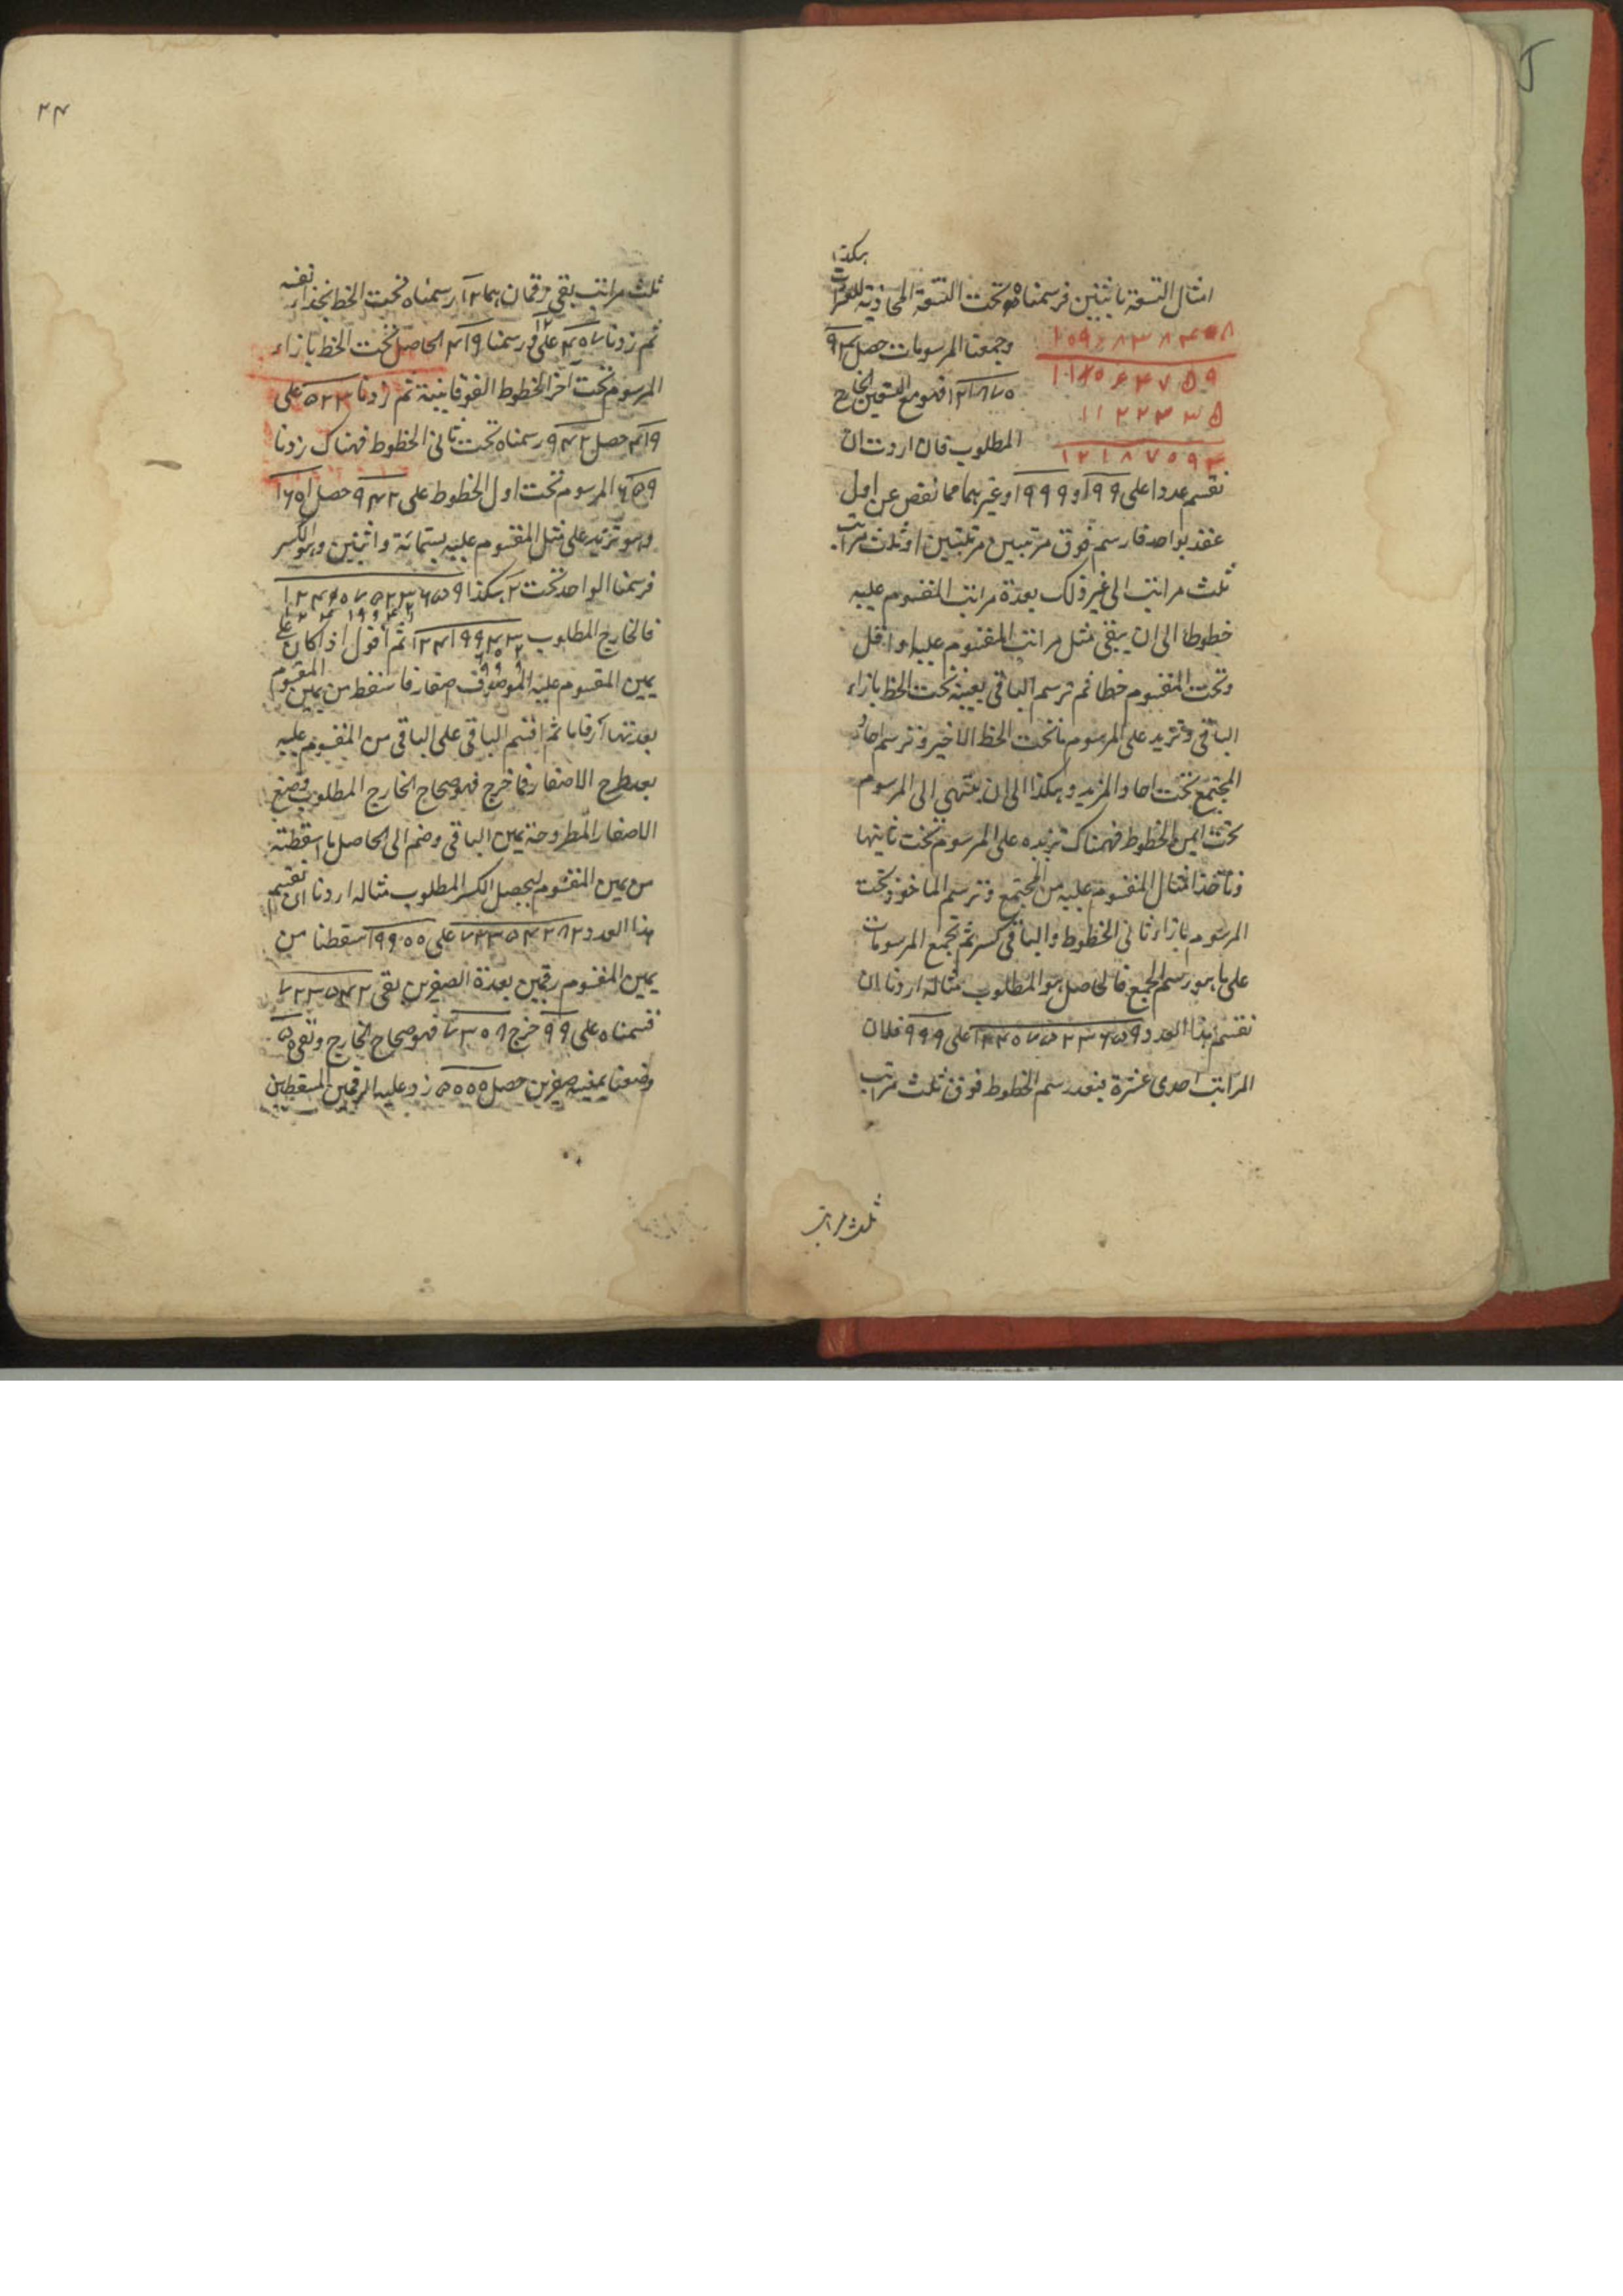 هكذا
امثال التسعة باثنين فرسمناه تحت التسعة المحاذية للعشرات
وجمعنا المرسومات حصل
فهو مع التسعين الخارج
المطلوب فان اردت ان
١٢١٨٧٥٩٣
نقسم عددا على ٩٩ او ٩٩٩ او غيرهما مما نقص عن اول
عقد بواحد فارسم فوق مرتبتين مرتبتين او ثلث مراتب
ثلث مراتب الى غير ذلك بعدة مراتب المقسوم عليه
خطوطا الى ان يبقى مثل مراتب المقسوم عليه او اقل
وتحت المقسوم خطا ثم ترسم الباقى بعينه تحت الخط بازاء
الباقى وتزيد على المرسوم ما تحت الخط الاخير وترسم احاد
المجتمع تحت احاد المزيد وهكذا الى ان ينتهي الى المرسوم
تحت ايمن الخطوط فهناك تزيده على المرسوم تحت ثانيتها
وتأخذ امثال المقسوم عليه من المجتمع وترسم الماخوذ تحت
المرسوم بازاء ثانى الخطوط والباقى كسر ثم تجمع المرسومات
على ما هو رسم الجمع فالحاصل هو المطلوب مثاله اردنا ان
نقسم هذا العدد ١٢٤٥٧٥٢٣٦٥٩ على ٩٩٩ فلان
المراتب احدى عشرة فبعد رسم الخطوط فوق ثلث مراتب
ثلث مراتب
٢٤
ثلث مراتب بقى رقمان هما ١٢ رسمناه تحت الخط بحذاء نفسه
ثم زدنا ٤٥٧ على ١٢ ورسمنا ٤١٩ الحاصل تحت الخط بازاء
المرسوم تحت آخر الخطوط الفوقانية ثم زدنا ٥٢٣ على
٤١٩ حصل ٩٤٢ رسمناه تحت ثانى الخطوط فهناك زدنا
٦٥٩ المرسوم تحت اول الخطوط على ٩٤٢ حصل ١٦٥١
وهو تزيد على مثل المقسوم عليه بستمائة واثنين وهو الكسر
فرسمنا الواحد تحت ٢ هكذا
فالخارج المطلوب ثم أقول اذا كان على
يمين المقسوم عليه الموصوف صفار فاسقط من يمين المقسوم
بعدتها ارقاما ثم اقسم الباقى على الباقى من المقسوم عليه
بعد طرح الاصفار فما خرج فهو صحاح الخارج المطلوب وضع
الاصفار المطروحة يمين الباقى وضم الى الحاصل ما اسقطته
من يمين المقسوم ليحصل الكسر المطلوب مثاله اردنا ان نقسم
هذا العدد ٧٢٣٥٤٢٨٢ على ٩٩٠٠ اسقطنا من
يمين المقسوم رقمين بعدة الصفرين بقى ٧٢٣٥٤٢
قسمناه على ٩٩ خرج ٧٣٠٨ فهو صحاح الخارج وبقى ٥٠
وضعنا يمينه صفرين حصل ٥٠٠٠ زد عليه الرقمين المسقطين